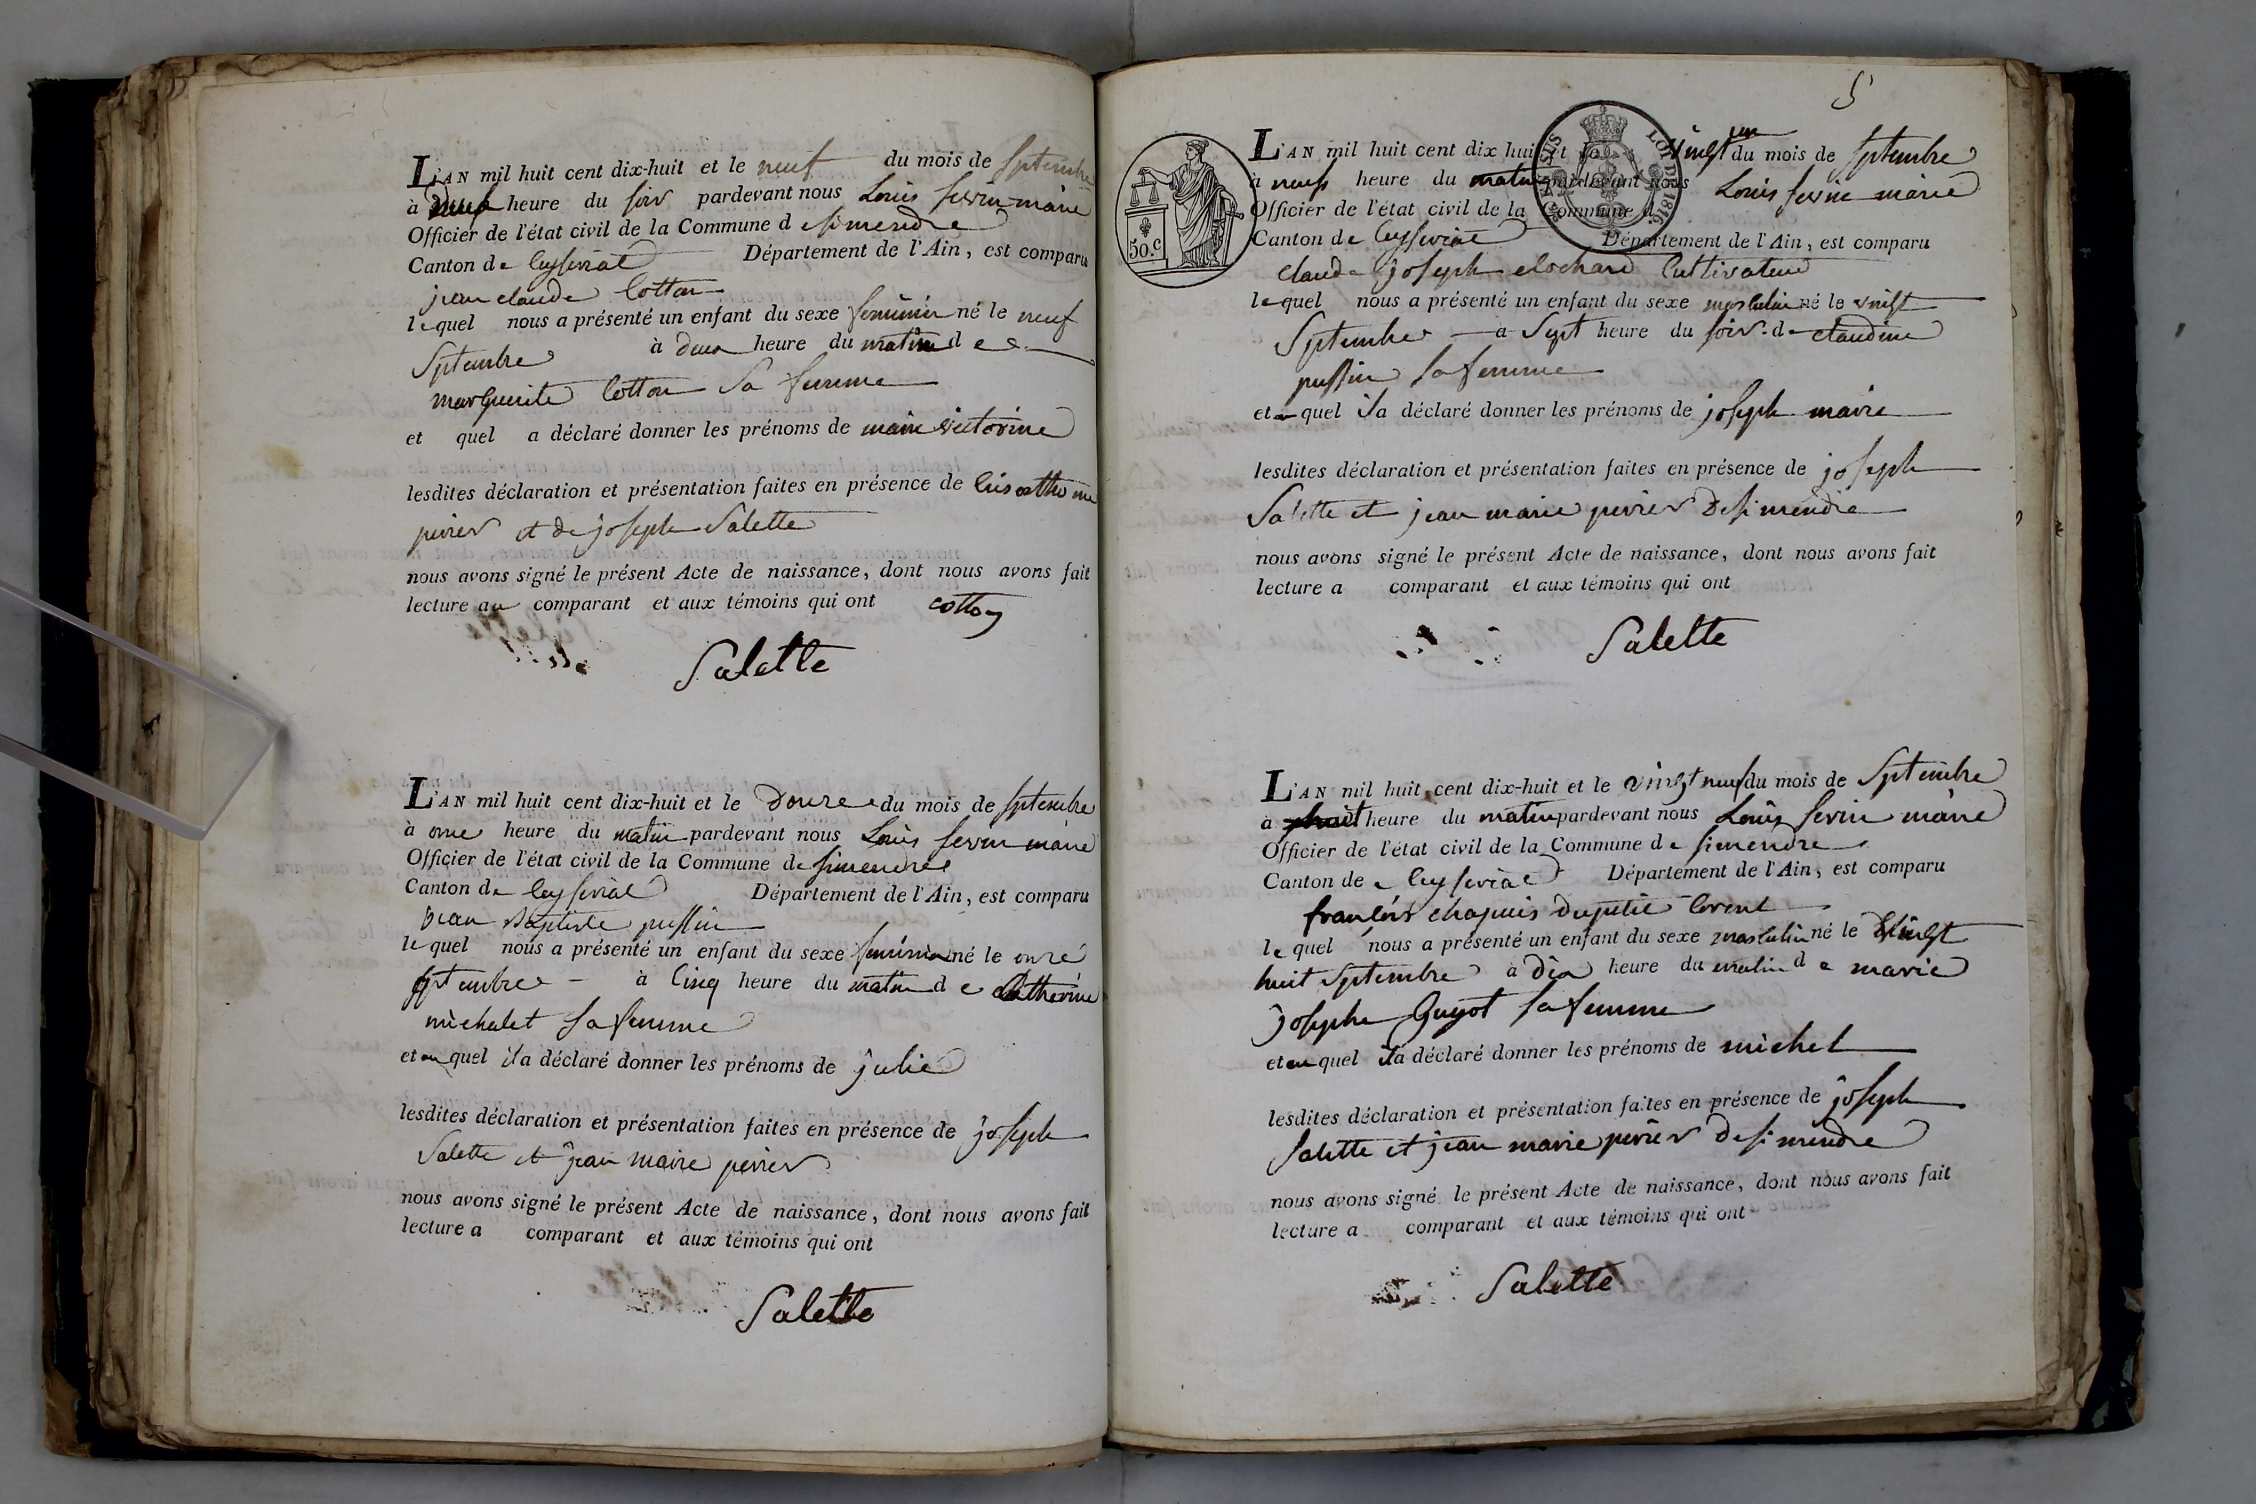 L'AN mil huit cent dix-huit et le neuf du mois de septembre
à heure du soir pardevant nous Louis fevrin maire
Officier de l'état civil de la Commune d e simendre
Canton de Ceyseriat Département de l'Ain, est comparu
jean claude Cotton
lequel nous a présenté un enfant du sexe feminin né le neuf
septembre à deux heure du matin d e
marguerite Cotton sa femme
et quel a déclaré donner les prénoms de marie victorine
lesdites déclaration et présentation faites en présence de
perier et de joseph Salette
nous avons signé le présent Acte de naissance, dont nous avons fait
lecture au comparant et aux témoins qui ont cotton
Salette
L'AN mil huit cent dix-huit et le Douze du mois de septembre
à onze heure du matin pardevant nous Louis fevrin maire
Officier de l'état civil de la Commune de simendre
Canton de Ceyseriat Département de l'Ain, est comparu
jean Baptiste pussin
lequel nous a présenté un enfant du sexe feminin né le onze
septembre à Cinq heure du matin d e Catherine
michalet sa femme
et au quel il a déclaré donner les prénoms de julie
lesdites déclaration et présentation faites en présence de joseph
Salette et jean marie perier
nous avons signé le présent Acte de naissance, dont nous avons fait
lecture a comparant et aux témoins qui ont
Salette
5
50.c
LOI DE 1816
L'AN mil huit cent dix huit et le vingt un du mois de septembre
à neuf heure du matin pardevant nous Louis fevrin maire
Officier de l'état civil de la Commune d
Canton de Ceyseriat Département de l'Ain, est comparu
claude joseph clochard Cultivateur
lequel nous a présenté un enfant du sexe masculin né le vingt
septembre à Sept heure du soir de claudine
pussin sa femme
et au quel il a déclaré donner les prénoms de joseph marie
lesdites déclaration et présentation faites en présence de joseph
Salette et jean marie perier De simendre
nous avons signé le présent Acte de naissance, dont nous avons fait
lecture a comparant et aux témoins qui ont
Salette
L'AN mil huit cent dix-huit et le vingt neuf du mois de septembre
à huit heure du matin pardevant nous Louis fevrin maire
Officier de l'état civil de la Commune de simendre
Canton de Ceyseriat Département de l'Ain, est comparu
françois chapuis
lequel nous a présenté un enfant du sexe masculin né le vingt
huit septembre à dix heure du matin d e marie
josephe guyot sa femme
et au quel il a déclaré donner les prénoms de michel
lesdites déclaration et présentation faites en présence de joseph
Salette et jean marie perier De simendre
nous avons signé le présent Acte de naissance, dont nous avons fait
lecture a comparant et aux témoins qui ont
Salette